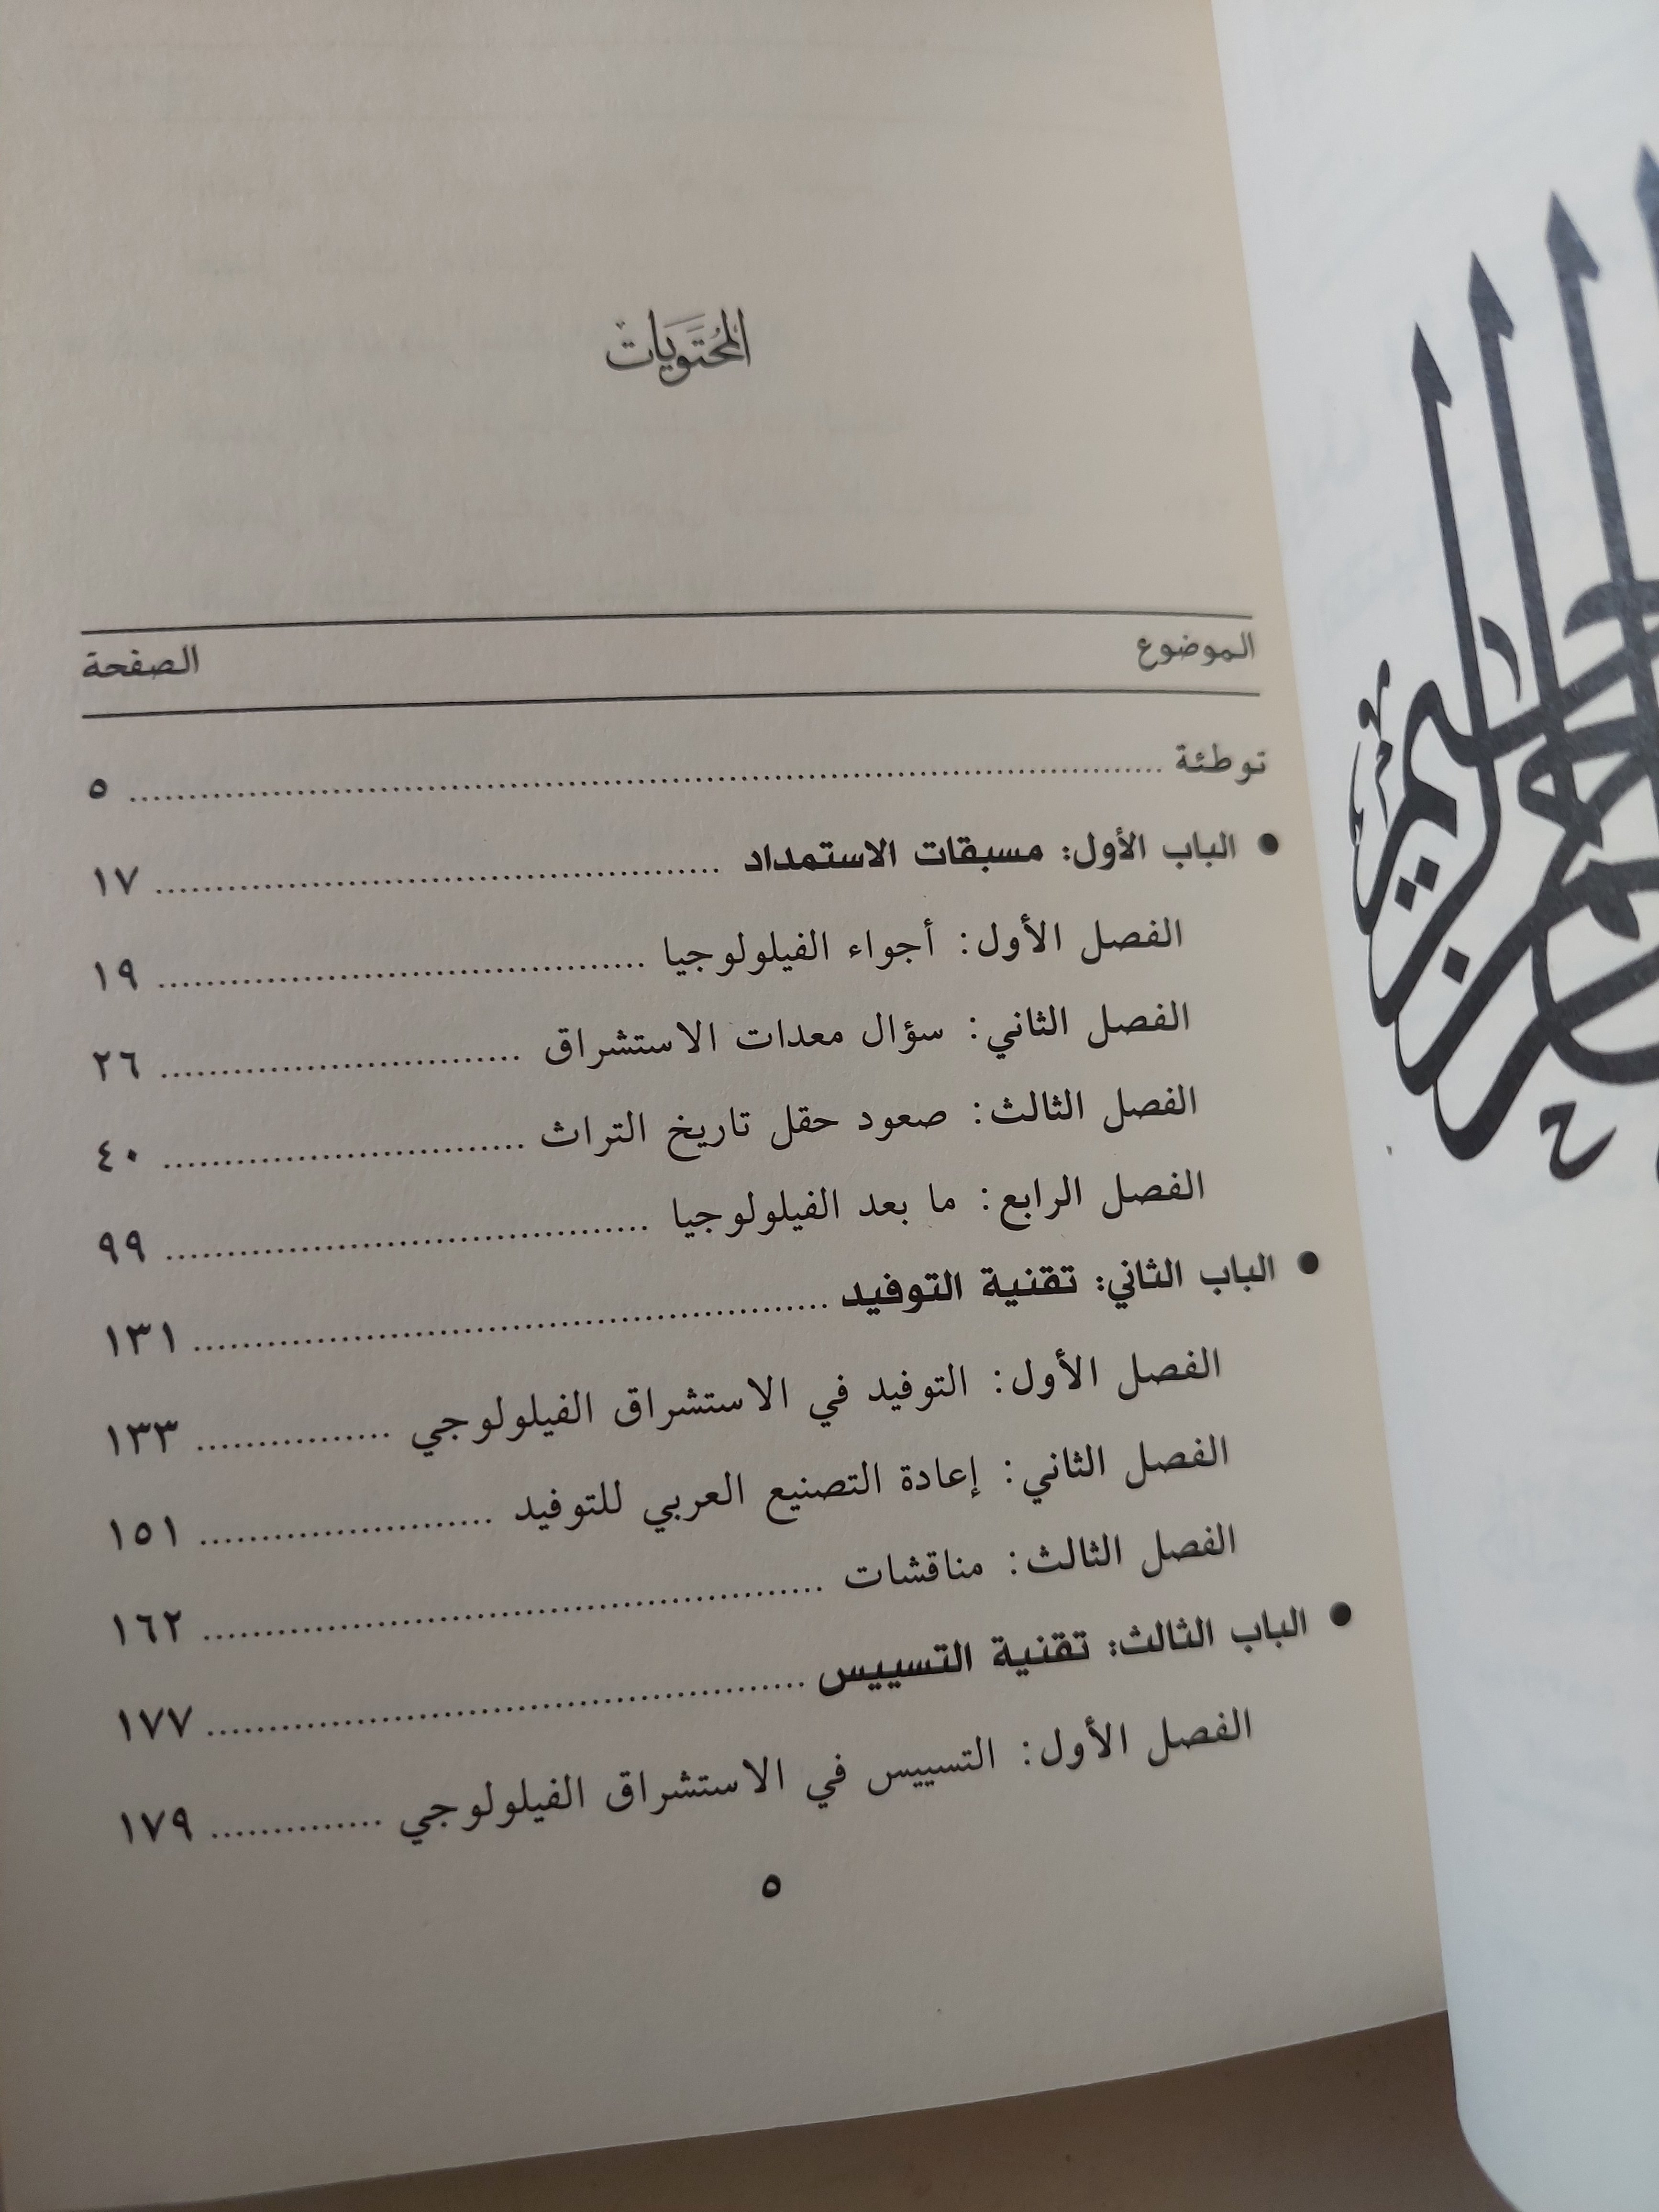 المُحْتَوَيَات
الموضوع الصفحة
توطئة ٥
• الباب الأول: مسبقات الاستمداد ١٧
الفصل الأول: أجواء الفيلولوجيا ١٩
الفصل الثاني: سؤال معدات الاستشراق ٢٦
الفصل الثالث: صعود حقل تاريخ التراث ٤٠
الفصل الرابع: ما بعد الفيلولوجيا ٩٩
• الباب الثاني: تقنية التوفيد ١٣١
الفصل الأول: التوفيد في الاستشراق الفيلولوجي ١٣٣
الفصل الثاني: إعادة التصنيع العربي للتوفيد ١٥١
الفصل الثالث: مناقشات ١٦٢
• الباب الثالث: تقنية التسييس ١٧٧
الفصل الأول: التسييس في الاستشراق الفيلولوجي ١٧٩
٥